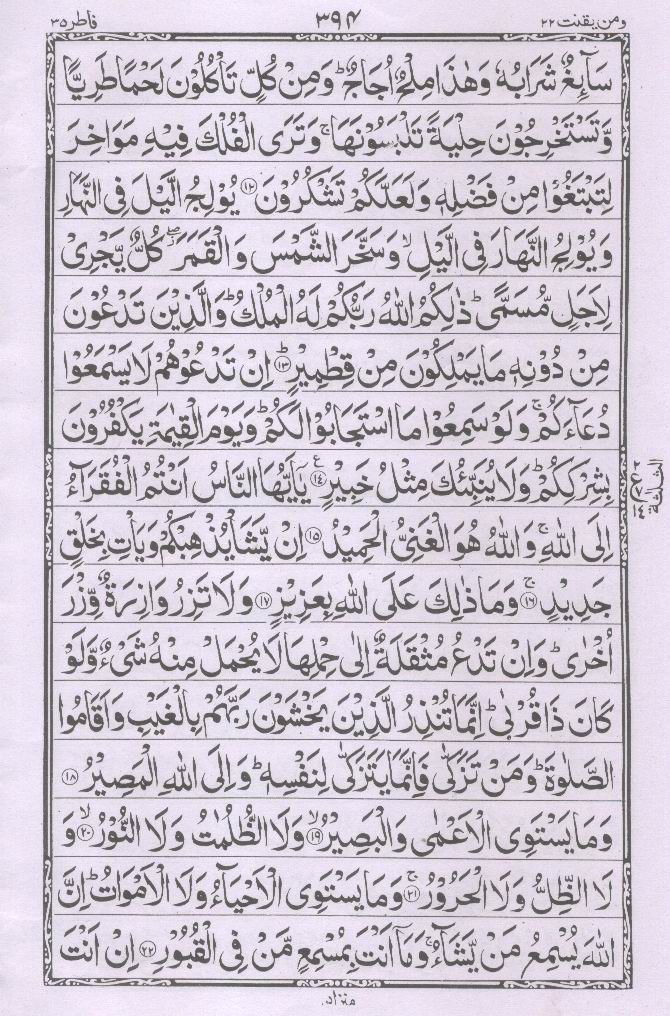 ومن یقنت ۲۲
۳۹۴
فاطر ۳۵
سَآئِغٌ شَرَابُهٗ وَهٰذَا مِلْحٌ اُجَاجٌ ؕ وَمِنْ كُلٍّ تَاْكُلُوْنَ لَحْمًا طَرِیًّا
وَّتَسْتَخْرِجُوْنَ حِلْیَةً تَلْبَسُوْنَهَا ۚ وَتَرَى الْفُلْكَ فِیْهِ مَوَاخِرَ
لِتَبْتَغُوْا مِنْ فَضْلِهٖ وَلَعَلَّكُمْ تَشْكُرُوْنَ ﴿۱۲﴾ یُوْلِجُ الَّیْلَ فِی النَّهَارِ
وَیُوْلِجُ النَّهَارَ فِی الَّیْلِ ۙ وَسَخَّرَ الشَّمْسَ وَالْقَمَرَ ۖ كُلٌّ یَّجْرِیْ
لِاَجَلٍ مُّسَمًّى ؕ ذٰلِكُمُ اللّٰهُ رَبُّكُمْ لَهُ الْمُلْكُ ؕ وَالَّذِیْنَ تَدْعُوْنَ
مِنْ دُوْنِهٖ مَا یَمْلِكُوْنَ مِنْ قِطْمِیْرٍ ؕ﴿۱۳﴾ اِنْ تَدْعُوْهُمْ لَا یَسْمَعُوْا
دُعَآءَكُمْ ۚ وَلَوْ سَمِعُوْا مَا اسْتَجَابُوْا لَكُمْ ؕ وَیَوْمَ الْقِیٰمَةِ یَكْفُرُوْنَ
بِشِرْكِكُمْ ؕ وَلَا یُنَبِّئُكَ مِثْلُ خَبِیْرٍ ﴿۱۴﴾ ع یٰۤاَیُّهَا النَّاسُ اَنْتُمُ الْفُقَرَآءُ
اِلَى اللّٰهِ ۚ وَاللّٰهُ هُوَ الْغَنِیُّ الْحَمِیْدُ ﴿۱۵﴾ اِنْ یَّشَاْ یُذْهِبْكُمْ وَیَاْتِ بِخَلْقٍ
جَدِیْدٍ ۚ﴿۱۶﴾ وَمَا ذٰلِكَ عَلَى اللّٰهِ بِعَزِیْزٍ ﴿۱۷﴾ وَلَا تَزِرُ وَازِرَةٌ وِّزْرَ
اُخْرٰى ؕ وَاِنْ تَدْعُ مُثْقَلَةٌ اِلٰى حِمْلِهَا لَا یُحْمَلْ مِنْهُ شَیْءٌ وَّلَوْ
كَانَ ذَا قُرْبٰى ؕ اِنَّمَا تُنْذِرُ الَّذِیْنَ یَخْشَوْنَ رَبَّهُمْ بِالْغَیْبِ وَاَقَامُوا
الصَّلٰوةَ ؕ وَمَنْ تَزَكّٰى فَاِنَّمَا یَتَزَكّٰى لِنَفْسِهٖ ؕ وَاِلَى اللّٰهِ الْمَصِیْرُ ﴿۱۸﴾
وَمَا یَسْتَوِی الْاَعْمٰى وَالْبَصِیْرُ ۙ﴿۱۹﴾ وَلَا الظُّلُمٰتُ وَلَا النُّوْرُ ۙ﴿۲۰﴾ وَ
لَا الظِّلُّ وَلَا الْحَرُوْرُ ۚ﴿۲۱﴾ وَمَا یَسْتَوِی الْاَحْیَآءُ وَلَا الْاَمْوَاتُ ؕ اِنَّ
اللّٰهَ یُسْمِعُ مَنْ یَّشَآءُ ۚ وَمَاۤ اَنْتَ بِمُسْمِعٍ مَّنْ فِی الْقُبُوْرِ ﴿۲۲﴾ اِنْ اَنْتَ
الثلٰثة
۲
ع
۷
۱۴